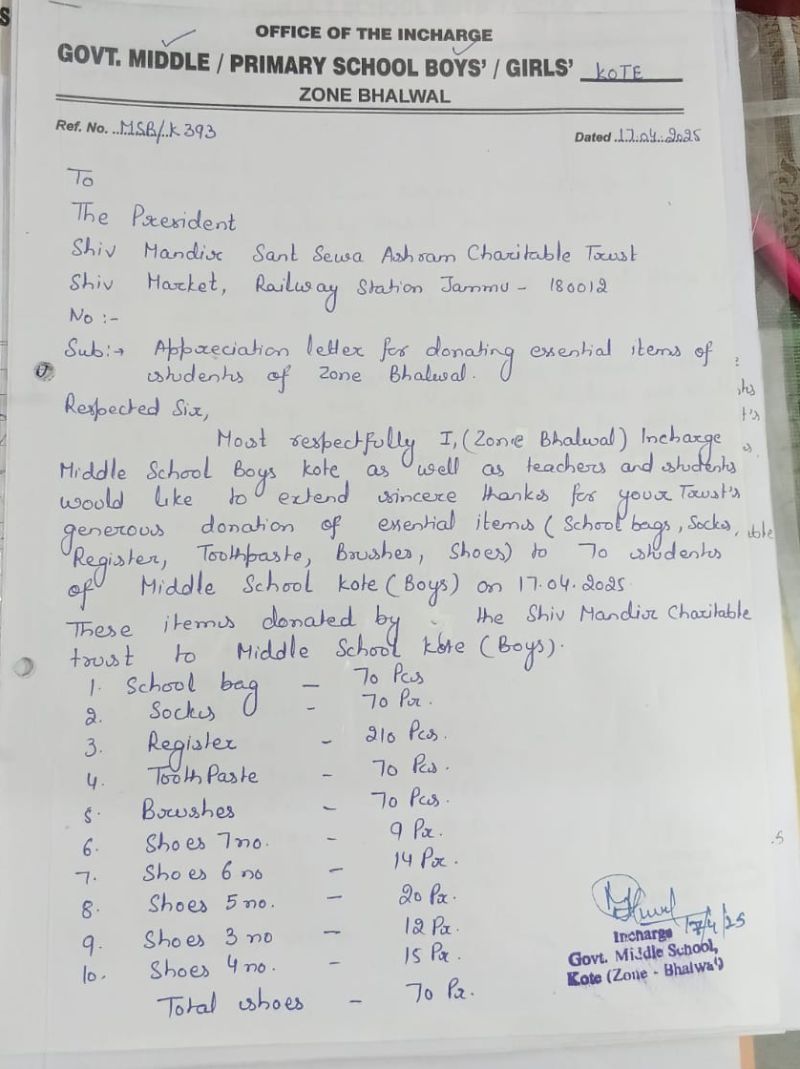 OFFICE OF THE INCHARGE
GOVT. MIDDLE / PRIMARY SCHOOL BOYS' / GIRLS' KOTE
ZONE BHALWAL
Ref. No. ..MSB/.K393 Dated .17.04.2025
To
The President
Shiv Mandir Sant Sewa Ashram Charitable Trust
Shiv Market, Railway Station Jammu - 180012
No :-
Sub:→ Appreciation letter for donating essential items of
students of Zone Bhalwal.
Respected Sir,
Most respectfully I, (Zone Bhalwal) Incharge
Middle School Boys Kote as well as teachers and students
would like to extend sincere thanks for your Trust's
generous donation of essential items (School bags, Socks,
Register, Toothpaste, Brushes, Shoes) to 70 students
of Middle School Kote (Boys) on 17.04.2025
These items donated by the Shiv Mandir Charitable
trust to Middle School Kote (Boys).
1. School bag - 70 Pcs
2. Socks - 70 Pr.
3. Register - 210 Pcs.
4. Tooth Paste - 70 Pcs.
5. Brushes - 70 Pcs.
6. Shoes 7 no. - 9 Pr.
7. Shoes 6 no - 14 Pr.
8. Shoes 5 no. - 20 Pr.
9. Shoes 3 no - 12 Pr.
10. Shoes 4 no. - 15 Pr.
Total shoes - 70 Pr.
17/4/25
Incharge
Govt. Middle School,
Kote (Zone - Bhalwal)